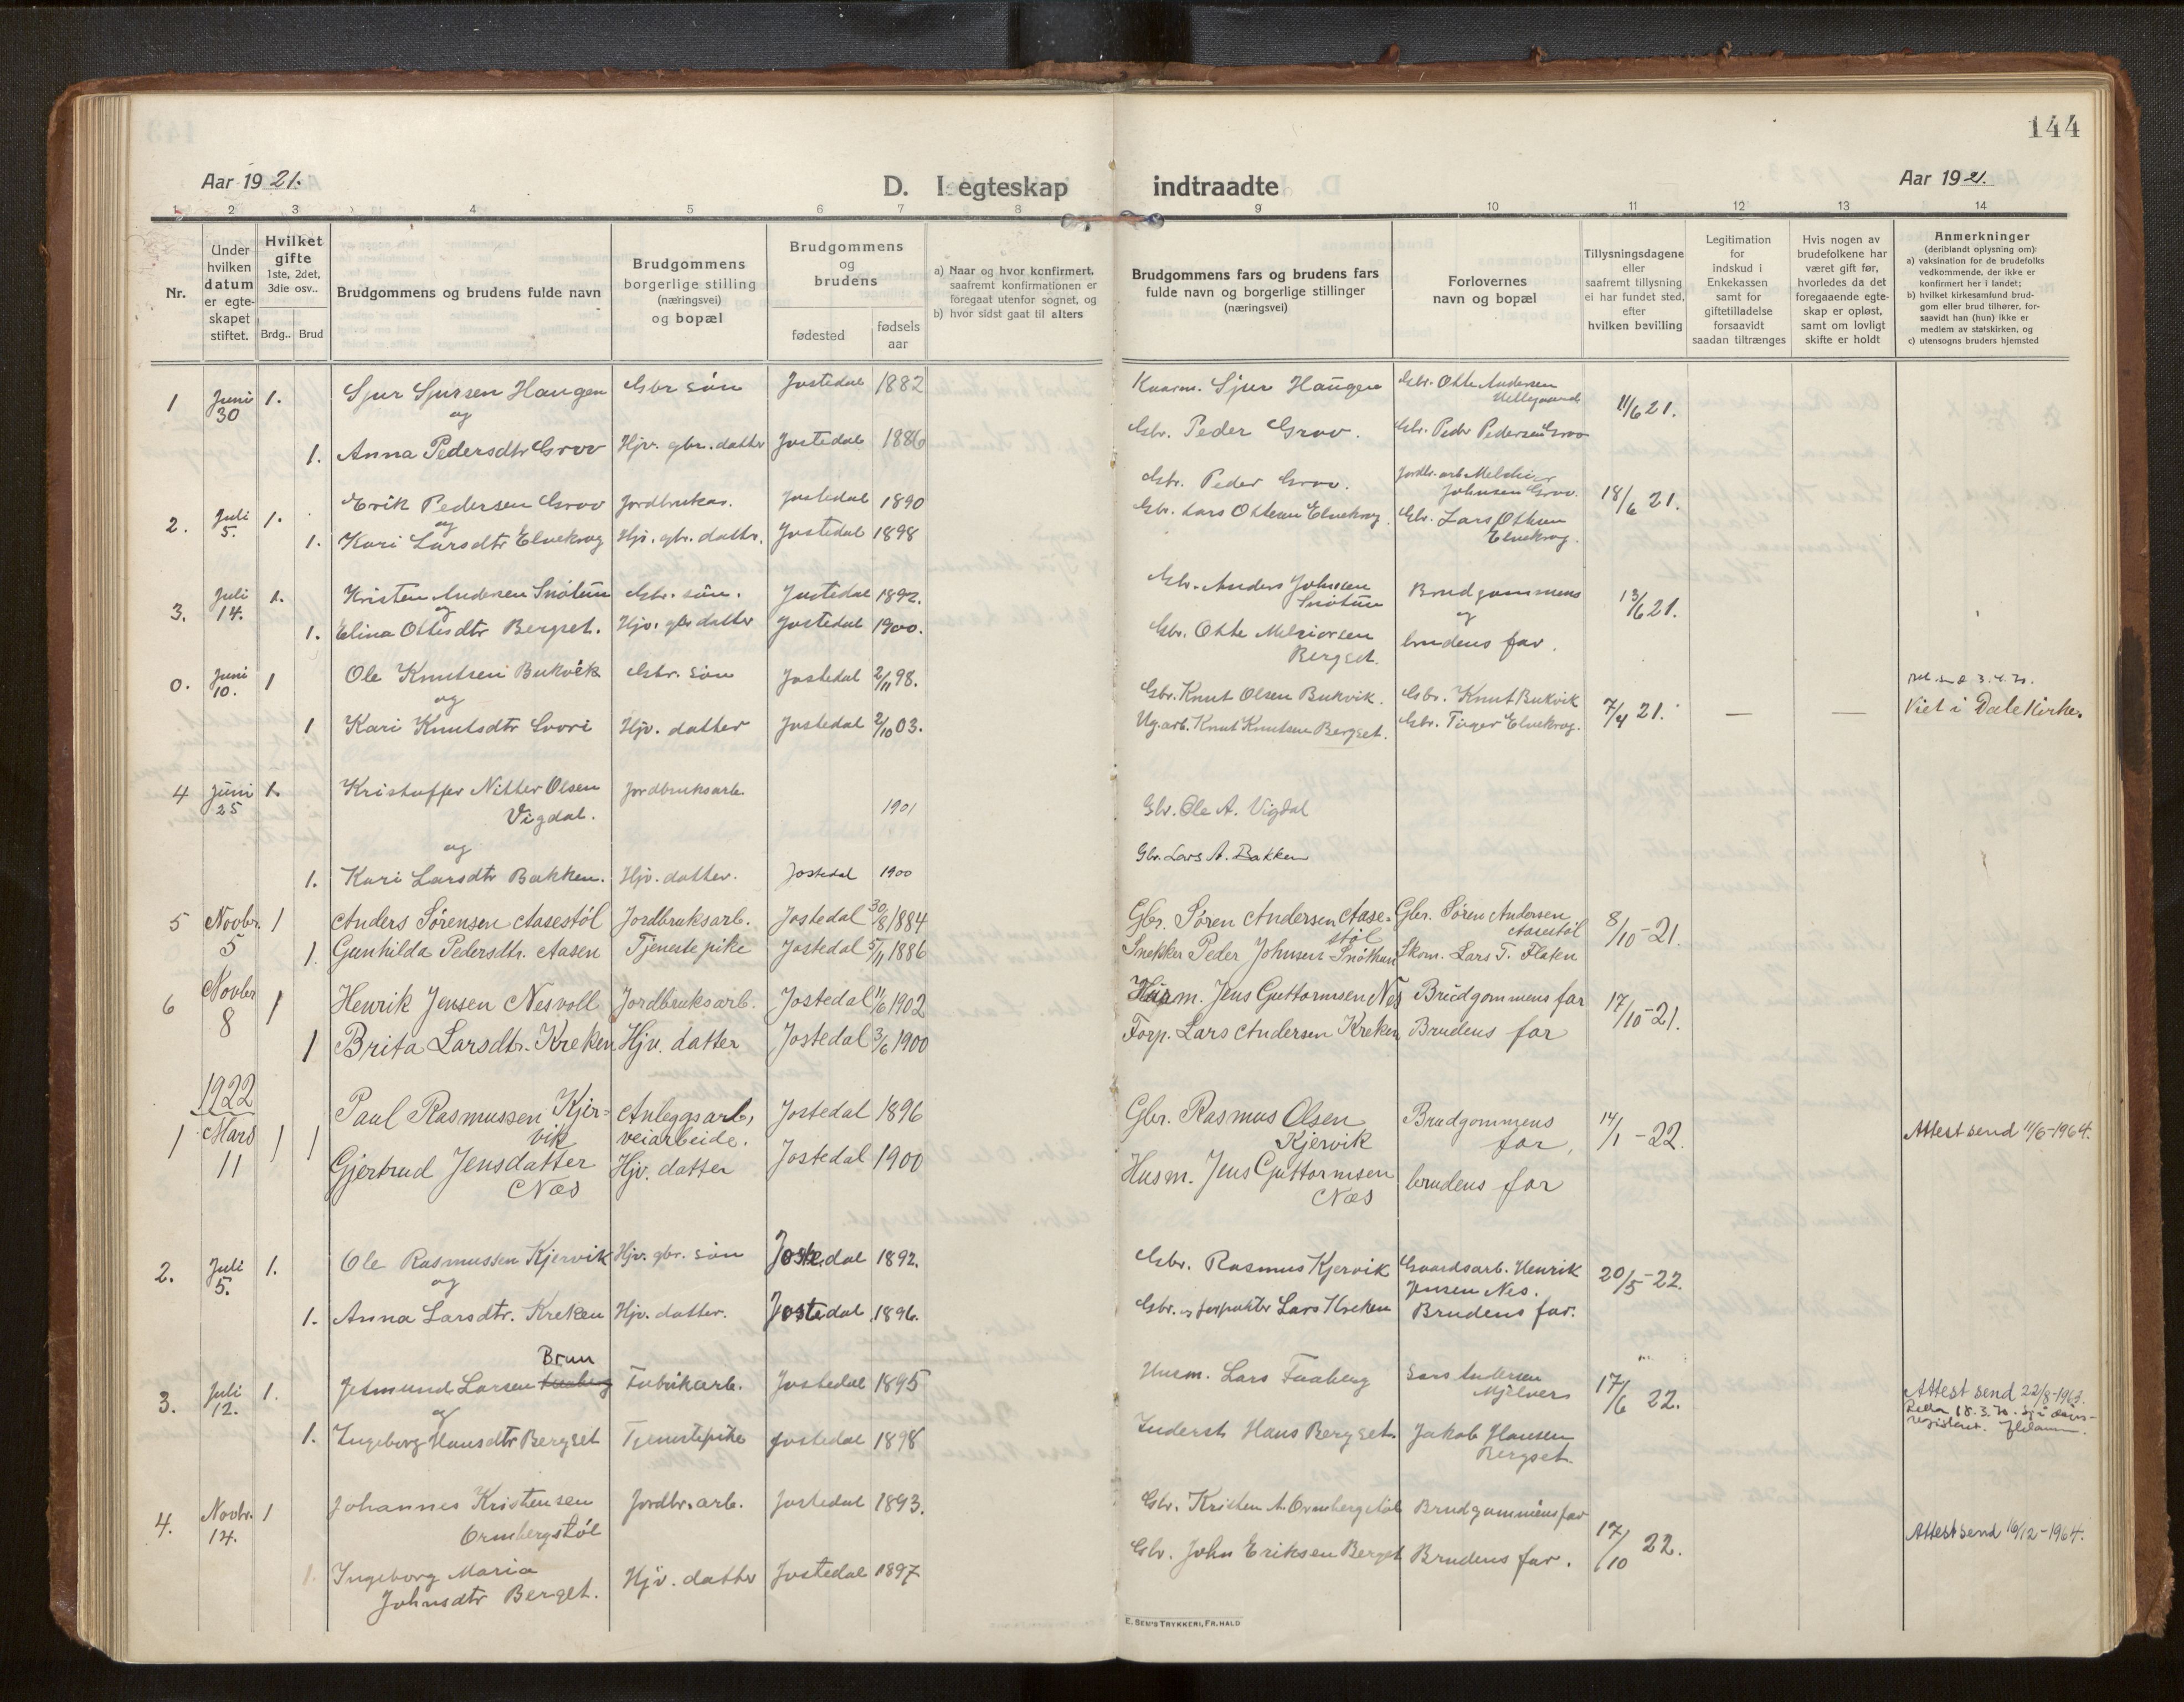 144
Aar 1921.
D. I egteskap indtraadte
Aar 1921.
1 2 3 4 5 6 7 8 9 10 11 12 13 14
Nr.
Under hvilken datum er egteskapet stiftet.
Hvilket gifte 1ste, 2det, 3die osv..
Brdg.. Brud
Brudgommens og brudens fulde navn
Brudgommens borgerlige stilling (næringsvei) og bopæl
Brudgommens og brudens
fødested
fødsels aar
a) Naar og hvor konfirmert, saafremt konfirmationen er foregaat utenfor sognet, og
b) hvor sidst gaat til alters
Brudgommens fars og brudens fars fulde navn og borgerlige stillinger (næringsvei)
Forlovernes navn og bopæl
Tillysningsdagene eller saafremt tillysning ei har fundet sted, efter hvilken bevilling
Legitimation for indskud i Enkekassen samt for giftetilladelse forsaavidt saadan tiltrænges
Hvis nogen av brudefolkene har været gift før, hvorledes da det foregaaende egteskap er opløst, samt om lovligt skifte er holdt
Anmerkninger
(deriblandt oplysning om):
a) vaksination for de brudefolks vedkommende, der ikke er konfirmert her i landet;
b) hvilket kirkesamfund brudgom eller brud tilhører, forsaavidt han (hun) ikke er medlem av statskirken, og
c) utensogns bruders hjemsted
1 Juni 30 1. Sjur Sjursen Haugen Gbr søn Jostedal 1882 Sjur Haugen Gbr. Otte Andersen 11/6 21.
og
1. Anna Pedersdtr Grov Hjv. gbr. datter Jostedal 1886 Gbr. Peder Grov. Gbr. Peder Pedersen Grov
2. Juli 5. 1. Erik Pedersen Grov Jordbruksar. Jostedal 1890 Gbr. Peder Grov. Jordbr. arb Melchior Johnsen Grov. 18/6 21.
og
1. Kari Larsdtr Elvekrog Hjv. gbr. dattr. Jostedal 1898 Gbr. Lars Ottesen Elvekrog. Gbr. Lars Ottesen Elvekrog.
3. Juli 14. 1. Kristen Andersen Snøtun Gbr. søn. Jostedal 1892. Gbr. Anders Johnsen Snøtun Brudgommens 13/6 21.
og og
1. Elina Ottesdtr Berget. Hjv. gbr datter Jostedal 1900. Gbr. Otte Melkiorsen Bergset. brudens far.
0. Juni 10. 1 Ole Knutsen Bukvik Gbr. søn Jostedal 2/11 98. Gbr. Knut Olsen Bukvik. Gbr. Knut Bukvik 7/4 21. — — Viet i Dale Kirke.
og
1 Kari Knutsdtr Svori Hjv. datter Jostedal 2/10 03. Ug. arb. Knut Knutsen Bergset. Gbr. Tøger Elvekrog.
4 Juni 25 1. Kristoffer Nitter Olsen Vigdal. Jordbruksarb. 1901 Gbr. Ole A. Vigdal
og
1. Kari Larsdtr Bakken. Hjv. datter. Jostedal 1900 Gbr. Lars A. Bakken
5 Novbr. 5 1 Anders Sørensen Aasestøl Jordbruksarb. Jostedal 30/8 1884 Gbr. Søren Andersen Aasestøl Gbr. Søren Andersen Aasestøl 8/10-21.
1. Gunhilda Pedersdtr. Aasen Tjenestepike Jostedal 5/11 1886 Snekker Peder Johnsen Snøthun Skom. Lars T. Flaten
6 Novbr 8 1 Henrik Jensen Nesvoll Jordbruksarb. Jostedal 11/6 1902 Husm. Jens Guttormsen Nes Brudgommens far 17/10-21.
1 Brita Larsdtr. Kreken Hjv. datter Jostedal 3/6 1900 Forp. Lars Andersen Kreken Brudens far
1922
1 Mars 11 1 1 Paul Rasmussen Kjervik Anleggsarb, veiarbeide. Jostedal 1896 Gbr. Rasmus Olsen Kjervik Brudgommens far, 14/1-22. Attest send 11/6-1964.
Gjertrud Jensdatter Næs Hjv. datter Jostedal 1900 Husm. Jens Guttormsen Næs brudens far
2. Juli 5. 1. Ole Rasmussen Kjervik Hjv. gbr. søn Jostedal 1892. Gbr. Rasmus Kjervik Gaardsarb. Henrik Jensen Nes. 20/5-22.
og
1. Anna Larsdtr. Kreken Hjv. datter. Jostedal 1896. Gbr. og forpakter Lars Kreken Brudens far.
3. Juli 12. 1. Jetmund Larsen Faaberg Brun Fabrikarb. Jostedal 1895 Husm. Lars Faaberg Lars Andersen Mjelvers 17/6 22. Attest send 22/8-1963.
og
1. Ingeborg Hansdtr Bergset Tjenestepike Jostedal 1898 Inderst Hans Bergset. Jakob Hansen Bergset.
4. Novbr. 14. 1 Johannes Kristensen Ormbergstøl Jordbr. arb. Jostedal 1893. Gbr. Kristen A. Ormbergstøl Brudgommens far 17/10 22. Attest send 16/12-1964.
1. Ingeborg Maria Johnsdtr Berget. Hjv. datter Jostedal 1897 Gbr. John Eriksen Berget Brudens far.
E. SEM'S TRYKKERI, FR.HALD